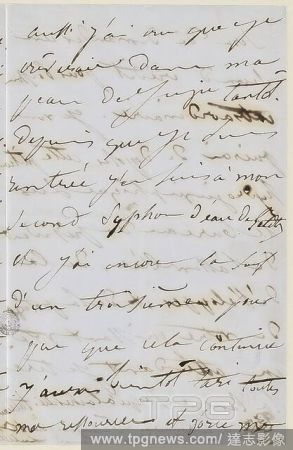 aussi j'ai cru que je
crèverais dans ma
peau de Singe tantôt.
depuis que je suis
rentrée j'en suis à mon
second Syphon d'eau de Seltz
et j'ai encore la soif
d'un troisième, pour
peu que cela continue
j'aurai bientôt tari toutes
mes ressources et
TPG
www.tpgnews.com / 達志影像